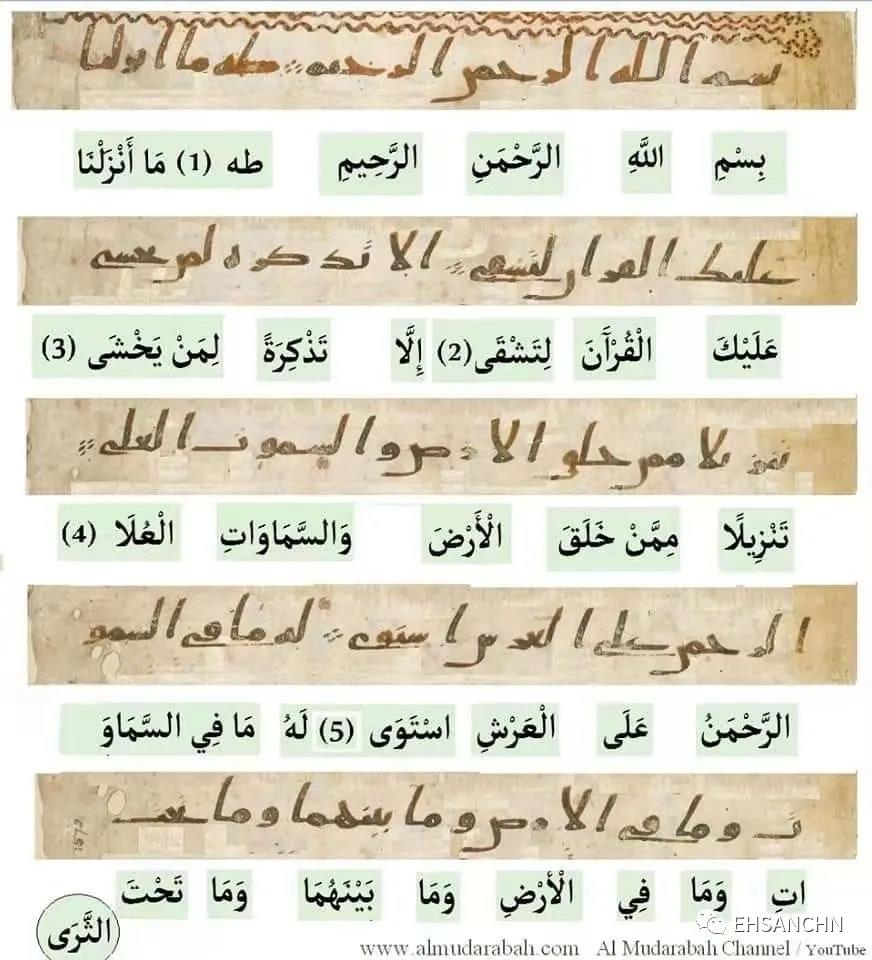 بسم الله الرحمن الرحيم طه ما انزلنا
بِسْمِ اللَّهِ الرَّحْمَنِ الرَّحِيمِ طه (1) مَا أَنْزَلْنَا
عليك القران لتشقى الا تذكره لمن يخشى
عَلَيْكَ الْقُرْآَنَ لِتَشْقَى (2) إِلَّا تَذْكِرَةً لِمَنْ يَخْشَى (3)
تنزيلا ممن خلق الارض والسموت العلى
تَنْزِيلًا مِمَّنْ خَلَقَ الْأَرْضَ وَالسَّمَاوَاتِ الْعُلَا (4)
الرحمن على العرش استوى له ما في السمو
الرَّحْمَنُ عَلَى الْعَرْشِ اسْتَوَى (5) لَهُ مَا فِي السَّمَاوَ
ت وما في الارض وما بينهما وما تحت
اتِ وَمَا فِي الْأَرْضِ وَمَا بَيْنَهُمَا وَمَا تَحْتَ
الثَّرَى
EHSANCHN
www.almudarabah.com Al Mudarabah Channel / YouTube